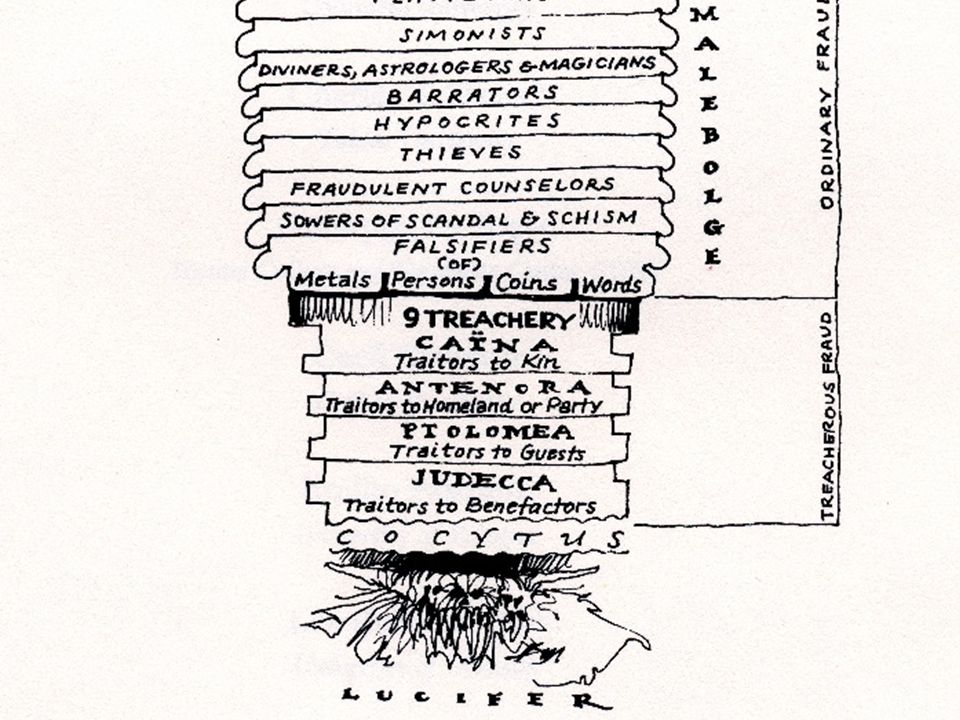 SIMONISTS
DIVINERS, ASTROLOGERS & MAGICIANS
BARRATORS
HYPOCRITES
THIEVES
FRAUDULENT COUNSELORS
SOWERS OF SCANDAL & SCHISM
FALSIFIERS
(OF)
Metals Persons Coins Words
9 TREACHERY
CAÏNA
Traitors to Kin
ANTENORA
Traitors to Homeland or Party
PTOLOMEA
Traitors to Guests
JUDECCA
Traitors to Benefactors
COCYTUS
LUCIFER
MALEBOLGE
ORDINARY FRAUD
TREACHEROUS FRAUD